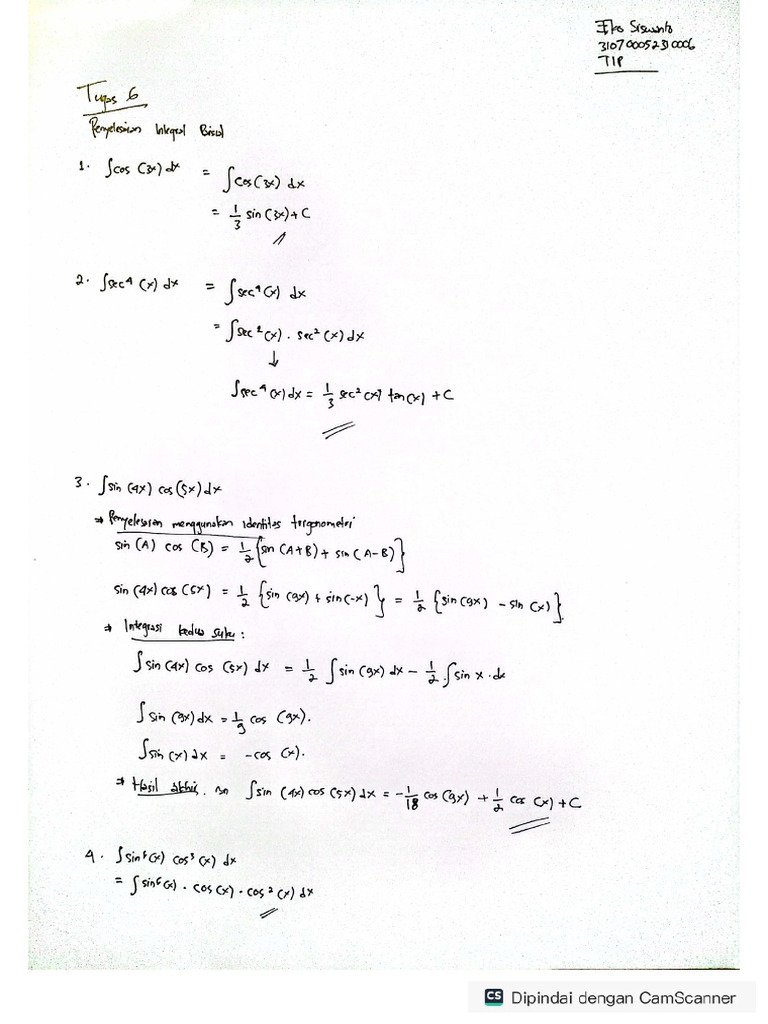 Eko Siswanto
310700052310006
TIP
Tugas 6
Penyelesaian Integral Biasa
1. ∫cos (3x) dx = ∫cos(3x) dx
= 1/3 sin (3x) + C
2. ∫sec⁴ (x) dx = ∫sec⁴(x) dx
= ∫sec²(x) . sec² (x) dx
↓
∫sec⁴(x) dx = 1/3 sec²(x) tan(x) + C
3. ∫sin (4x) cos(5x) dx
⇒ Penyelesaian menggunakan identitas trigonometri
sin (A) cos (B) = 1/2 {sin (A+B) + sin (A-B)}
sin (4x) cos (5x) = 1/2 {sin (9x) + sin(-x)} = 1/2 {sin (9x) - sin (x)}.
⇒ Integrasi kedua suku :
∫sin (4x) cos (5x) dx = 1/2 ∫sin (9x) dx - 1/2 . ∫sin x . dx
∫sin (9x) dx = 1/9 cos (9x).
∫sin (x) dx = -cos (x).
⇒ Hasil akhir. ∫sin (4x) cos (5x) dx = -1/18 cos (9x) + 1/2 cos (x) + C
4. ∫sin⁶(x) cos³ (x) dx
= ∫sin⁶(x) . cos (x) . cos² (x) dx
CS Dipindai dengan CamScanner